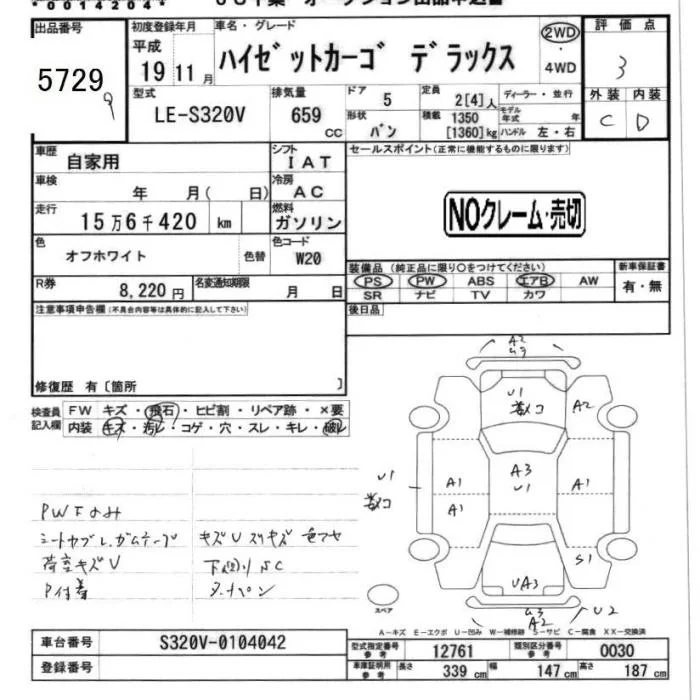 ＊00114204＊
出品番号
5729
9
初度登録年月
平成
19 11月
車名・グレード
ハイゼットカーゴ デラックス
2WD
・
4WD
評価点
3
外装 内装
C D
型式
LE-S320V
排気量
659
cc
ドア 5
形状 バン
定員 2[4]人
積載 1350
[1360]kg
ディーラー・並行
モデル年式 年
ハンドル 左・右
車歴 自家用
シフト
IAT
車検 年 月( 日)
冷房
AC
走行 15万6千420 km
燃料
ガソリン
色 オフホワイト 色替
色コード
W20
R券 8,220円
名変通知期限 月 日
セールスポイント(正常に機能するものに限ります)
NOクレーム・売切
装備品 (純正品に限り○をつけてください)
PS PW ABS エアB AW
SR ナビ TV カワ
新車保証書
有・無
後日品
注意事項申告欄(不具合内容等は具体的に記入して下さい)
修復歴 有〔箇所 〕
検査員
記入欄
FW キズ・飛石・ヒビ割・リペア跡・×要
内装 キズ・汚レ・コゲ・穴・スレ・キレ・破レ
A2
U1
A2
U1
A1
A1
A3
U1
A1
S1
UA3
U2
A2
PW下のみ
シートヤブレ ガムテープ
キズU スリキズ 色アセ
荷室キズU
下廻りSC
P付着
スペア
A-キズ E-エクボ U-凹み W-補修跡 S-サビ C-腐食 XX-交換済
車台番号 S320V-0104042
登録番号
型式指定番号
参考
12761
類別区分番号
参考
0030
車庫証明用
参考
長さ 339 cm 幅 147 cm 高さ 187 cm